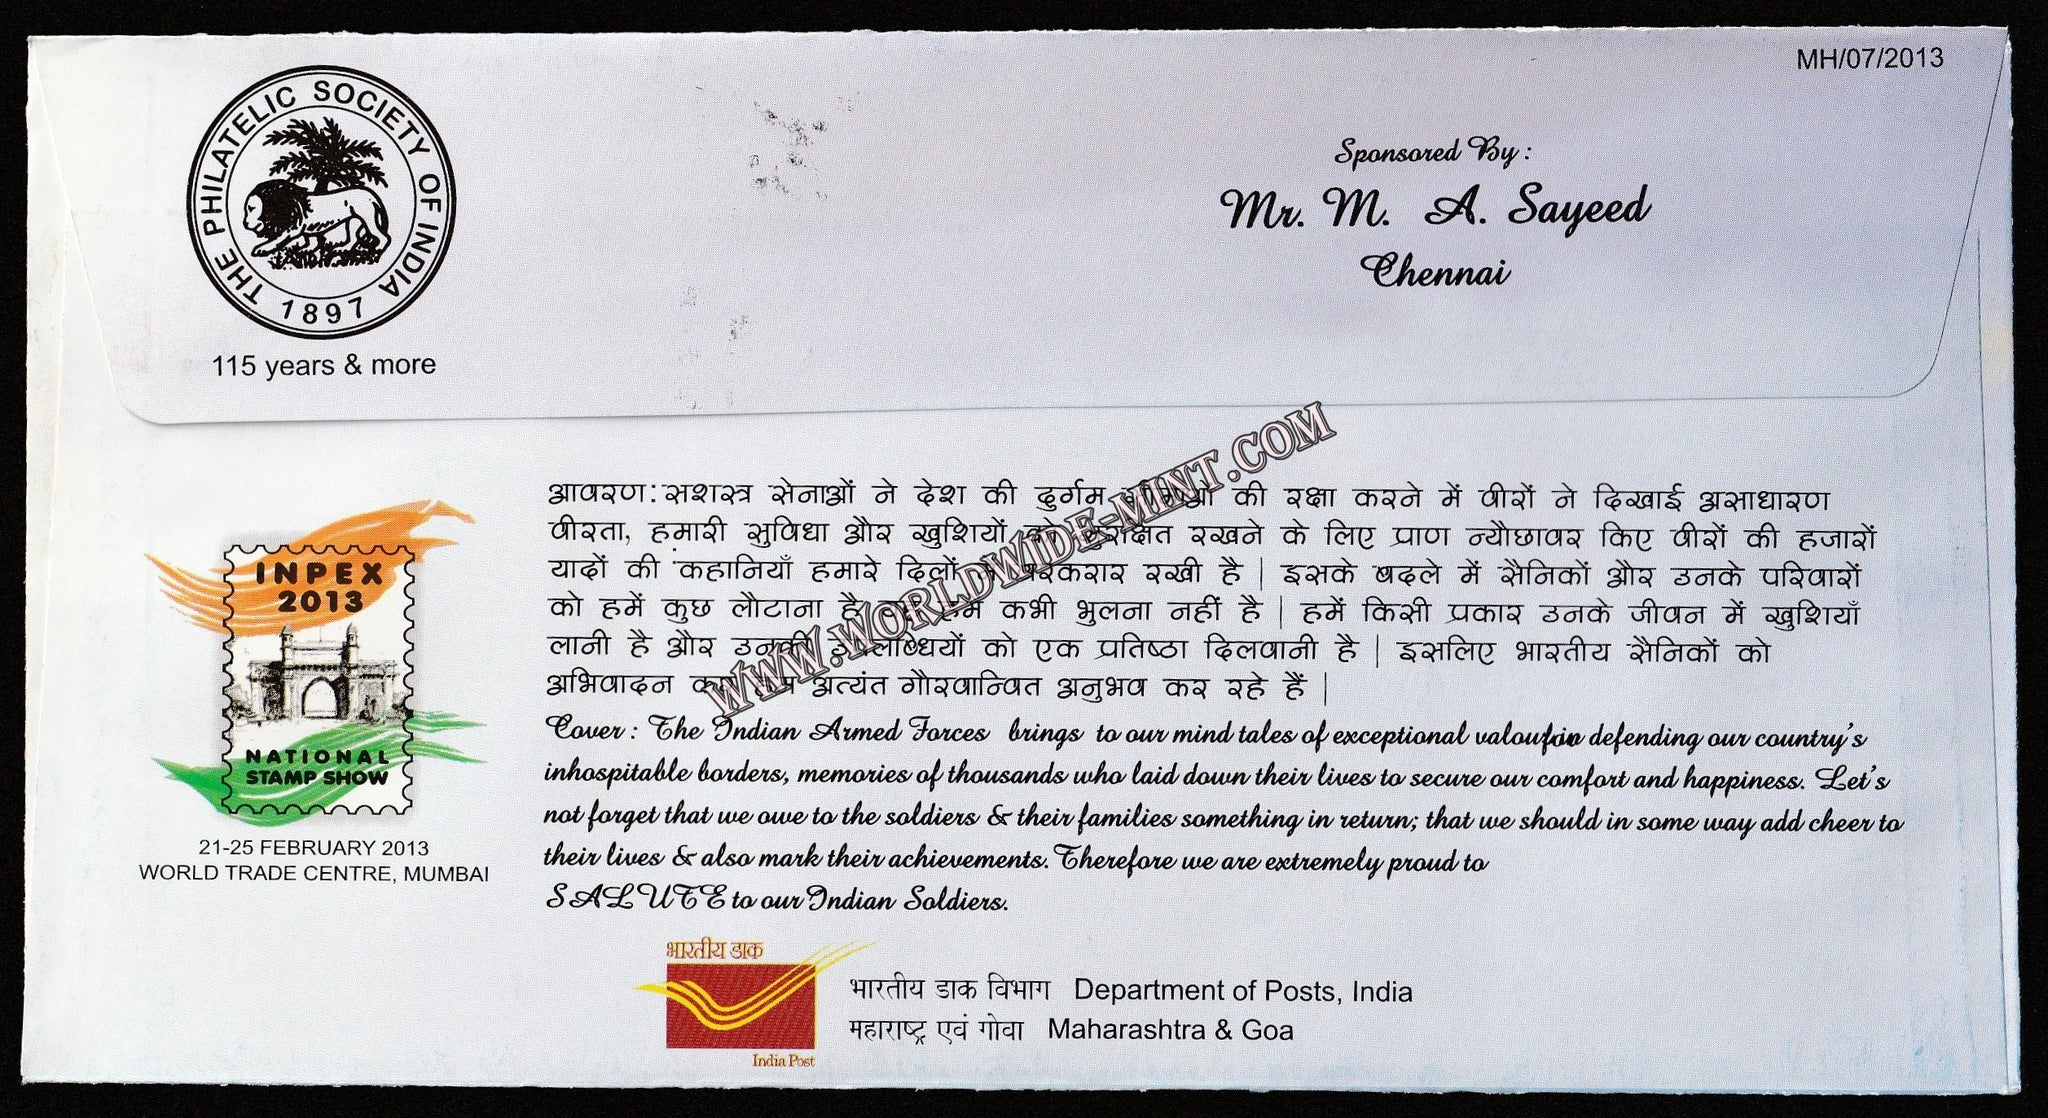 MH/07/2013
THE PHILATELIC SOCIETY OF INDIA
1897
115 years & more
Sponsored By :
Mr. M. A. Sayeed
Chennai
WWW.WORLDWIDE-MINT.COM
आवरण: सशस्त्र सेनाओं ने देश की दुर्गम की रक्षा करने में वीरों ने दिखाई असाधारण
वीरता, हमारी सुविधा और खुशियों को सुरक्षित रखने के लिए प्राण न्यौछावर किए वीरों की हजारों
यादों की कहानियाँ हमारे दिलों बरकरार रखी है | इसके बदले में सैनिकों और उनके परिवारों
को हमें कुछ लौटाना है हमें कभी भुलना नहीं है | हमें किसी प्रकार उनके जीवन में खुशियाँ
लानी है और उनकी उपलब्धियों को एक प्रतिष्ठा दिलवानी है | इसलिए भारतीय सैनिकों को
अभिवादन अत्यंत गौरवान्वित अनुभव कर रहे हैं |
Cover : The Indian Armed Forces brings to our mind tales of exceptional defending our country's
inhospitable borders, memories of thousands who laid down their lives to secure our comfort and happiness. Let's
not forget that we owe to the soldiers & their families something in return; that we should in some way add cheer to
their lives & also mark their achievements. Therefore we are extremely proud to
SALUTE to our Indian Soldiers.
INPEX
2013
NATIONAL
STAMP SHOW
21-25 FEBRUARY 2013
WORLD TRADE CENTRE, MUMBAI
भारतीय डाक
India Post
भारतीय डाक विभाग Department of Posts, India
महाराष्ट्र एवं गोवा Maharashtra & Goa